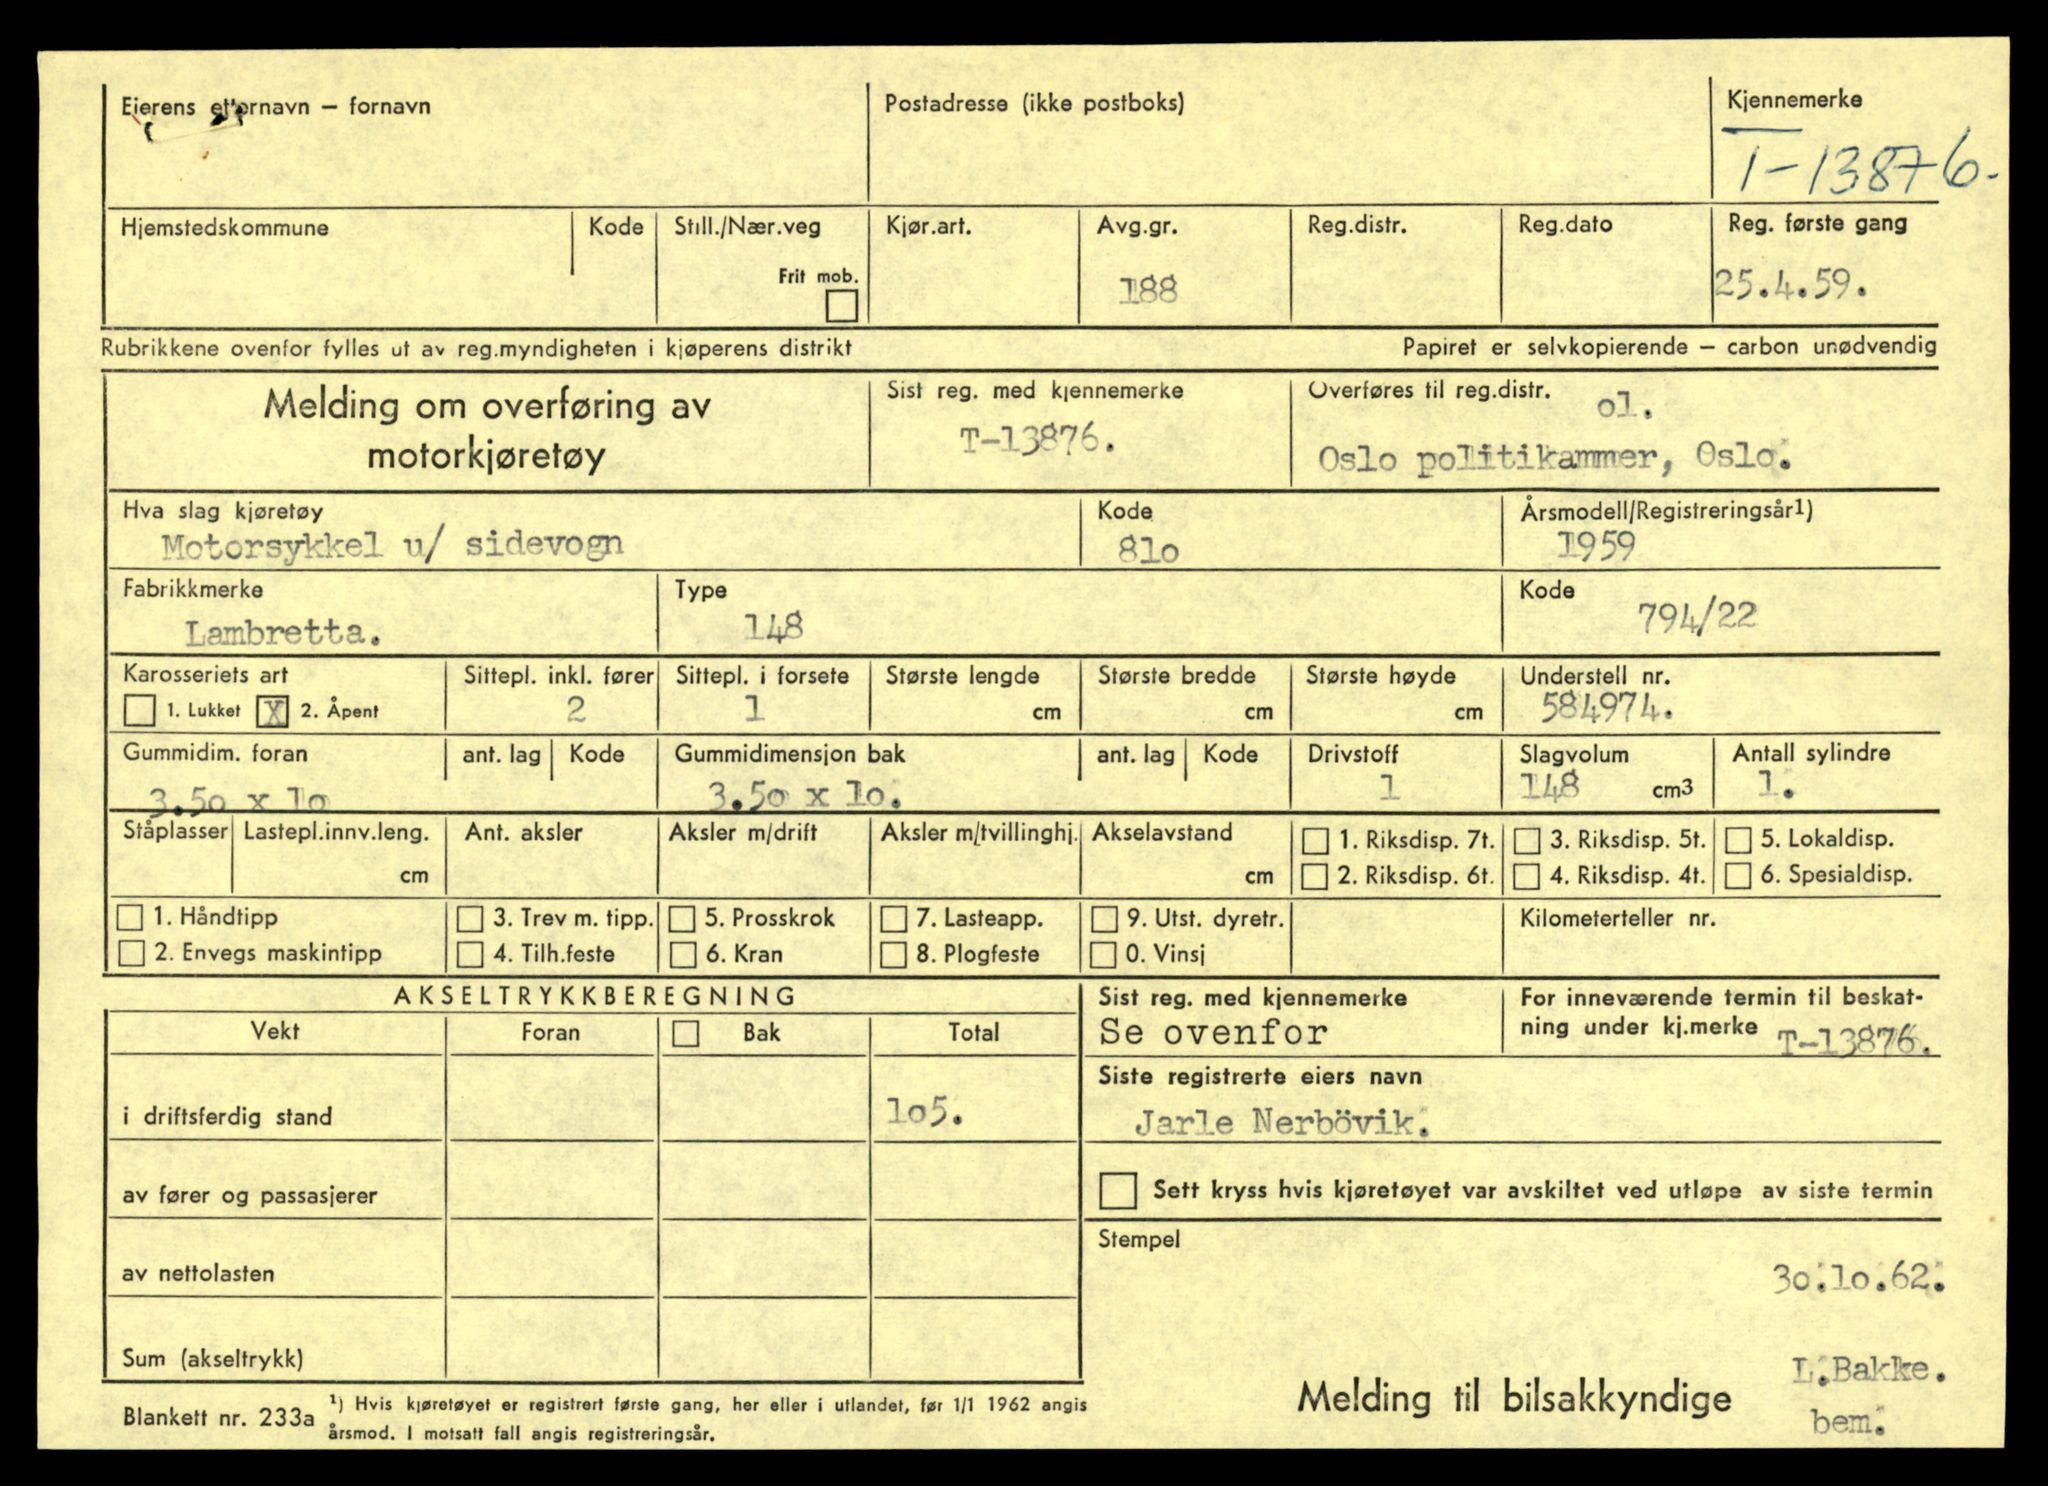 Eierens etternavn – fornavn
Postadresse (ikke postboks)
Kjennemerke
T-13876.
Hjemstedskommune
Kode
Still./Nær.veg
Frit mob.
Kjør.art.
Avg.gr.
188
Reg.distr.
Reg.dato
Reg. første gang
25.4.59.
Rubrikkene ovenfor fylles ut av reg.myndigheten i kjøperens distrikt
Papiret er selvkopierende – carbon unødvendig
Melding om overføring av
motorkjøretøy
Sist reg. med kjennemerke
T-13876.
Overføres til reg.distr.
ol.
Oslo politikammer, Oslo.
Hva slag kjøretøy
Motorsykkel u/ sidevogn
Kode
81o
Årsmodell/Registreringsår1)
1959
Fabrikkmerke
Lambretta.
Type
148
Kode
794/22
Karosseriets art
1. Lukket X 2. Åpent
Sittepl. inkl. fører
2
Sittepl. i forsete
1
Største lengde
cm
Største bredde
cm
Største høyde
cm
Understell nr.
584974.
Gummidim. foran
3.5o x lo
ant. lag
Kode
Gummidimensjon bak
3.5o x lo.
ant. lag
Kode
Drivstoff
1
Slagvolum
148 cm3
Antall sylindre
1.
Ståplasser
Lastepl.innv.leng.
cm
Ant. aksler
Aksler m/drift
Aksler m/tvillinghj.
Akselavstand
cm
1. Riksdisp. 7t.
2. Riksdisp. 6t.
3. Riksdisp. 5t.
4. Riksdisp. 4t.
5. Lokaldisp.
6. Spesialdisp.
1. Håndtipp
2. Envegs maskintipp
3. Trev m. tipp.
4. Tilh.feste
5. Prosskrok
6. Kran
7. Lasteapp.
8. Plogfeste
9. Utst. dyretr.
0. Vinsj
Kilometerteller nr.
AKSELTRYKKBEREGNING
Vekt
Foran
Bak
Total
i driftsferdig stand
lo5.
av fører og passasjerer
av nettolasten
Sum (akseltrykk)
Sist reg. med kjennemerke
Se ovenfor
For inneværende termin til beskat-
ning under kj.merke T-13876.
Siste registrerte eiers navn
Jarle Nerbövik.
Sett kryss hvis kjøretøyet var avskiltet ved utløpe av siste termin
Stempel
3o.lo.62.
L.Bakke.
bem.
Melding til bilsakkyndige
Blankett nr. 233a
1) Hvis kjøretøyet er registrert første gang, her eller i utlandet, før 1/1 1962 angis
årsmod. I motsatt fall angis registreringsår.